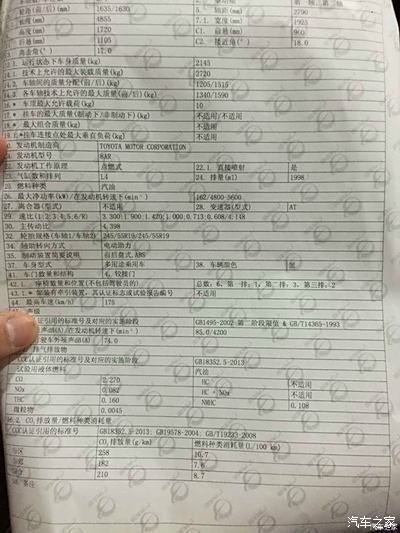 1635/1630 5. 轴距(mm) 2790
长度(mm) 4855 7.1. 宽度(mm) 1925
高度(mm) 1720 C1. 前悬(mm) 960
后悬(mm) 1105 C2. 接近角(°) 18.0
离去角(°) 17.0
运行状态下车身质量(kg) 2145
14.1. 技术上允许的最大装载质量(kg) 2720
车轴间的质量分配(前/后)(kg) 1205/1515
各车轴技术上允许的最大质量(前/后)(kg) 1340/1590
16.* 车顶最大允许载荷(kg) 10
17.* 挂车的最大质量(制动下/非制动下)(kg) 不适用/不适用
18.* 最大组合质量(kg) 不适用
挂车连接点处最大垂直负荷(kg) 不适用
发动机制造商 TOYOTA MOTOR CORPORATION
发动机型号 8AR
发动机工作原理 点燃式 22.1. 直接喷射 是
23. 气缸数和排列 L4 24. 排量(ml) 1998
25. 燃料种类 汽油
26. 最大净功率(kW)/在发动机转速下(min⁻¹) 162/4800-5600
27. 离合器(型式) 不适用 28. 变速器(型式) AT
29. 速比(1:2:3:4:5:6/R) 3.300:1.900:1.420:1.000:0.713:0.608/4.148
30. 主传动比 4.398
32. 轮胎规格(车轴1/车轴2) 245/55R19/245/55R19
34. 转向方式 电动助力
35. 制动装置简要说明 前后盘式,ABS
37. 车身型式 多用途乘用车 38. 车辆颜色 黑
41. 车门数量和结构 4, 铰接门
42.1. 座椅数量和位置(不包括驾驶员的) 总数: 6, 第一排: 1, 第二排: 3, 第三排: 2
如装有牵引装置, 其认证标志或试验报告编号 不适用
44. 最高车速(km/h) 175
声级
认证引用的标准号及对应的实施阶段 GB1495-2002 第二阶段限值 & GB/T14365-1993
声(A)/在发动机转速下(min⁻¹) 85.0/4200
驶车外噪声 74.0
排气排放物
CCC认证引用的标准号及对应的实施阶段 GB18352.5-2013
试验用液体燃料 汽油
CO 0.270 HC 不适用
NOx 0.082 HC + NOx 不适用
THC 0.160 NMHC 0.108
微粒物 0.0045
CO₂排放量/燃料种类消耗量
CCC认证引用的标准号 GB18352.5-2013; GB19578-2004; GB/T19233-2008
CO₂排放量(g/km) 燃料种类消耗量(L/100 km)
市区 258 10.7
182 7.6
综合 210 8.7
备注
汽车之家